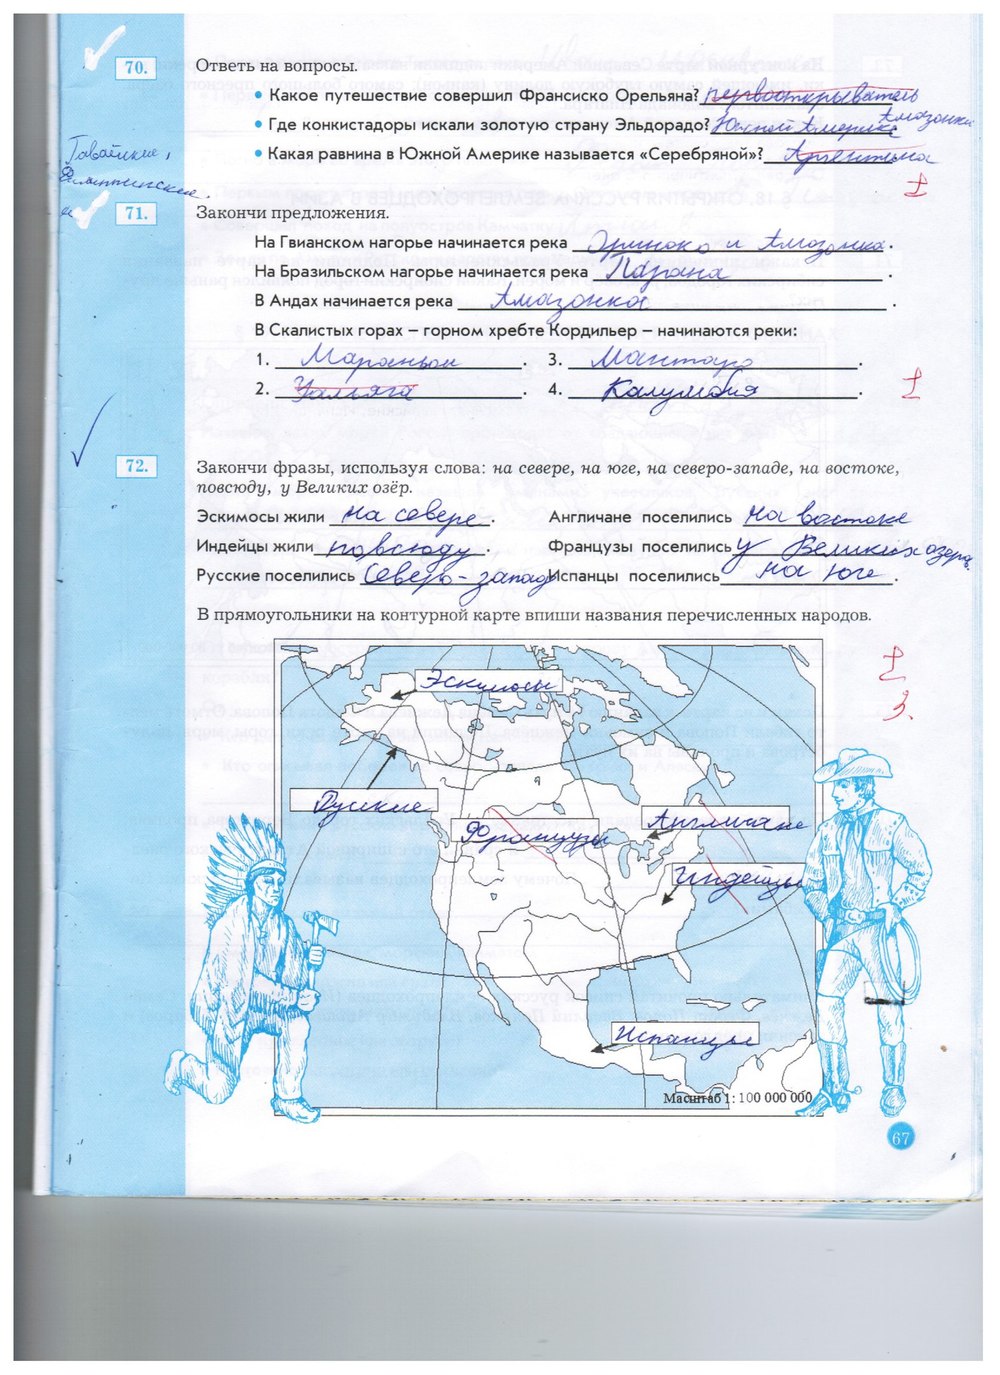 70.
Ответь на вопросы.
• Какое путешествие совершил Франсиско Орельяна? первооткрыватель
Амазонки
• Где конкистадоры искали золотую страну Эльдорадо? Южной Америке
• Какая равнина в Южной Америке называется «Серебряной»? Аргентина
Гавайские,
Филиппинские.
71.
Закончи предложения.
На Гвианском нагорье начинается река Ориноко и Амазонка.
На Бразильском нагорье начинается река Парана.
В Андах начинается река Амазонка.
В Скалистых горах – горном хребте Кордильер – начинаются реки:
1. Мараньон. 3. Мантаро.
2. Уальяга. 4. Калумбия.
72.
Закончи фразы, используя слова: на севере, на юге, на северо-западе, на востоке,
повсюду, у Великих озёр.
Эскимосы жили на севере. Англичане поселились на востоке
Индейцы жили повсюду. Французы поселились у Великих озера.
Русские поселились Северо-запад Испанцы поселились на юге.
В прямоугольники на контурной карте впиши названия перечисленных народов.
Эскимосы
3.
Русские
Французы
Англичане
Индейцы
Испанцы
Масштаб 1: 100 000 000
67